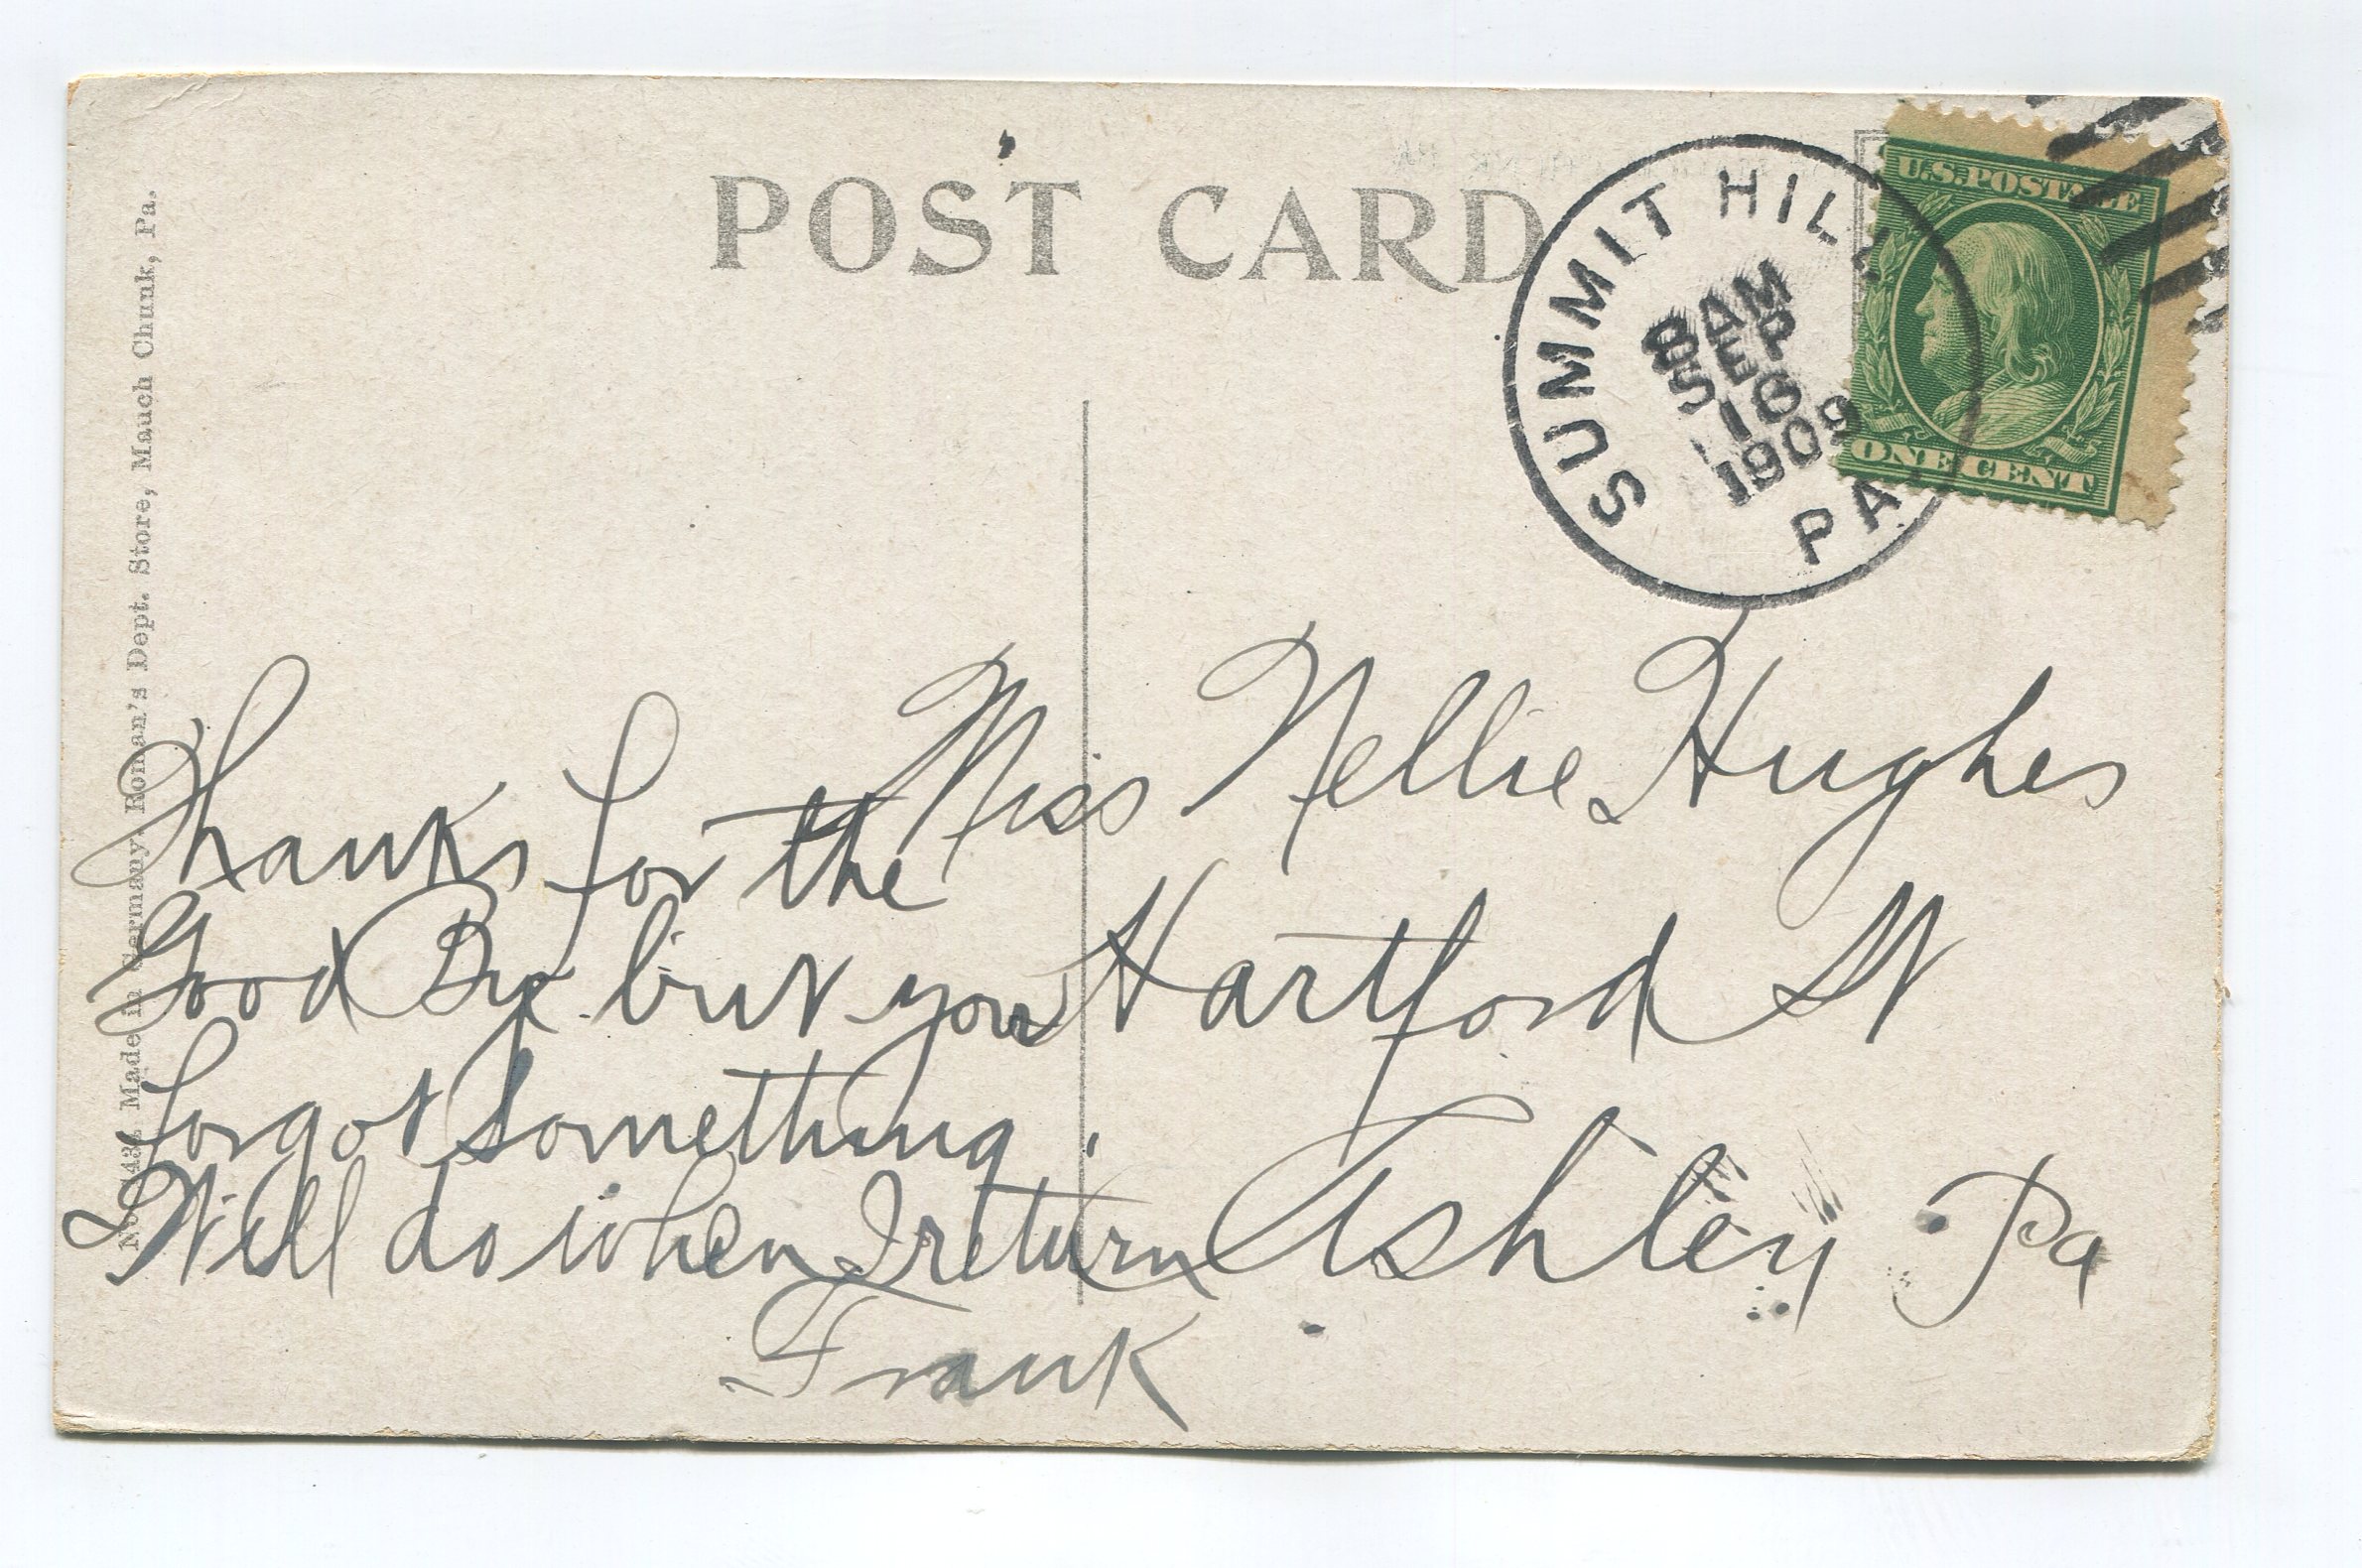 POST CARD
SUMMIT HILL
PA
8 AM
SEP
16
1909
U.S. POSTAGE
ONE CENT
Made in Germany. Roman's Dept. Store, Mauch Chunk, Pa.
Thanks for the
Good By but you
forgot something.
Will do when I return
Frank
Miss Nellie Hughes
Hartford St
Ashley Pa